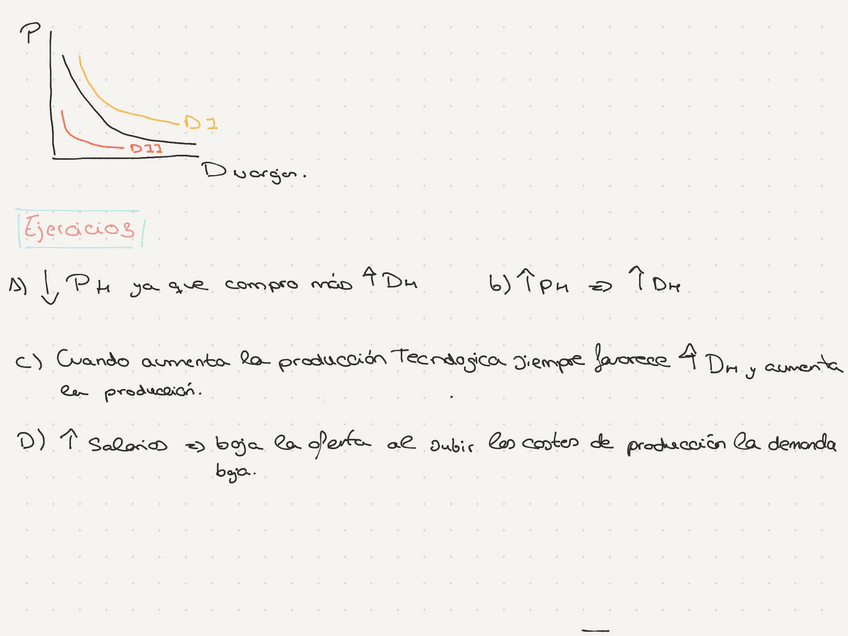 P
D I
D II
D vargan.
Ejercicios
A) ↓ PM ya que compro más ↑ DM
b) ↑ PM => ↑ DM
C) Cuando aumenta la producción Tecnologica siempre favorece ↑ DM y aumenta
la producción.
D) ↑ Salarios => baja la oferta al subir los costes de producción la demanda
baja.